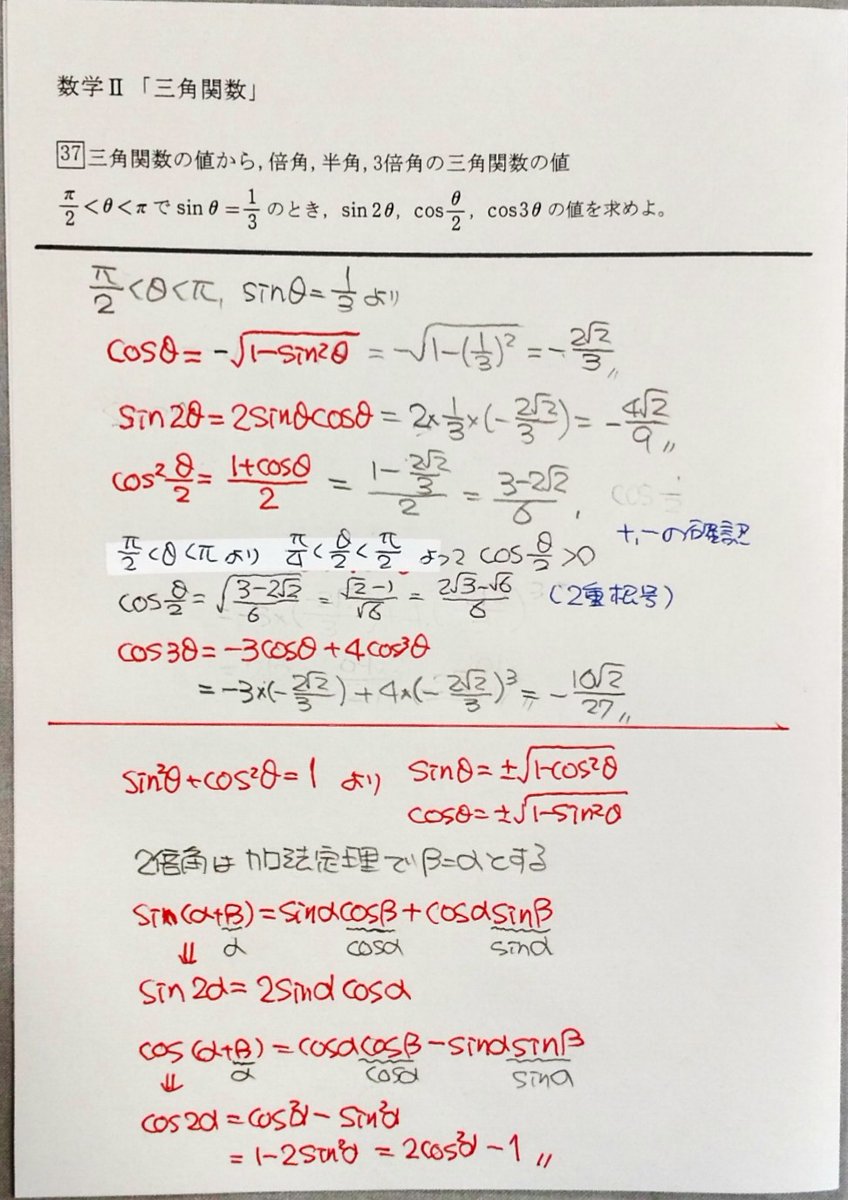 数学Ⅱ「三角関数」
37 三角関数の値から, 倍角, 半角, 3倍角の三角関数の値
π/2 < θ < π で sin θ = 1/3 のとき, sin 2θ, cos θ/2, cos3θ の値を求めよ。
π/2 < θ < π, sinθ = 1/3 より
cosθ = -√(1-sin²θ) = -√(1-(1/3)²) = -2√2/3 〃
sin 2θ = 2sinθcosθ = 2×1/3×(-2√2/3) = -4√2/9 〃
cos² θ/2 = (1+cosθ)/2 = (1-2√2/3)/2 = (3-2√2)/6,
+,-の確認
π/2 < θ < π より π/4 < θ/2 < π/2 よって cos θ/2 > 0
cos θ/2 = √((3-2√2)/6) = (√2-1)/√6 = (2√3-√6)/6 (2重根号)
cos3θ = -3cosθ + 4cos³θ
= -3×(-2√2/3) + 4×(-2√2/3)³ = -10√2/27 〃
sin²θ + cos²θ = 1 より sinθ = ±√(1-cos²θ)
cosθ = ±√(1-sin²θ)
2倍角は加法定理でβ=αとする
sin(α+β) = sinαcosβ + cosαsinβ
⇓ α cosα sinα
sin 2α = 2sinα cosα
cos(α+β) = cosαcosβ - sinαsinβ
⇓ α cosα sinα
cos2α = cos²α - sin²α
= 1-2sin²α = 2cos²α - 1 〃